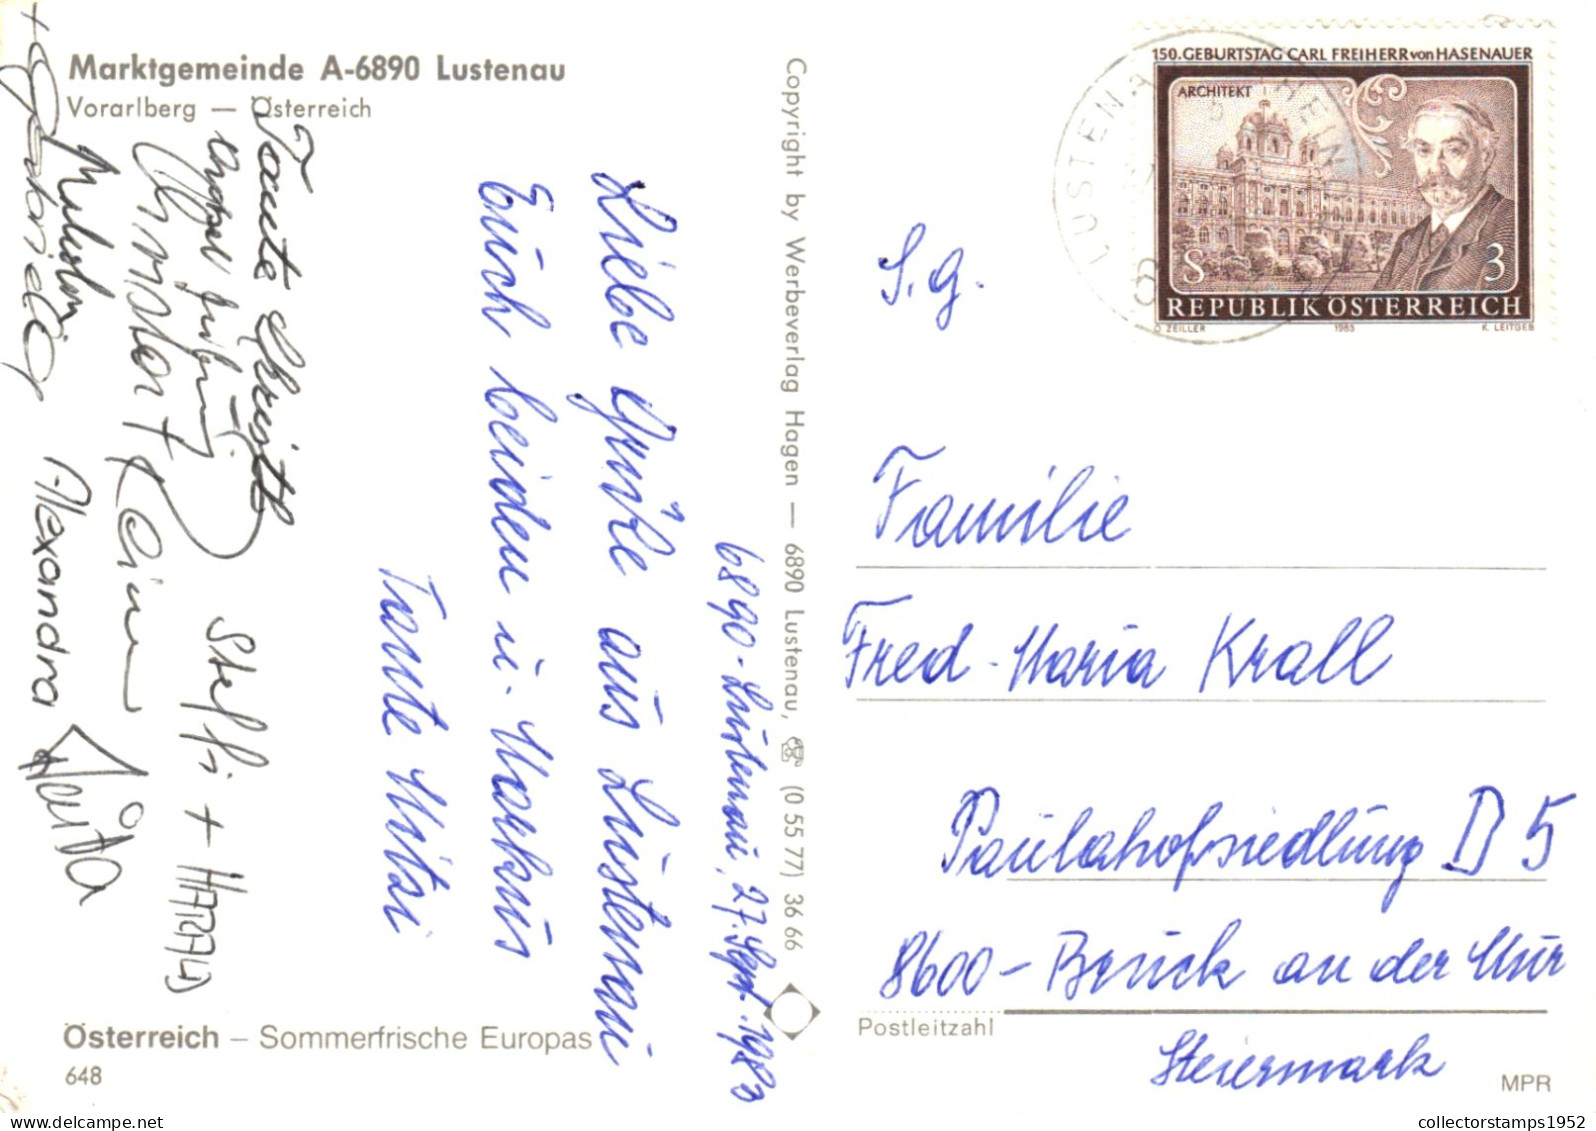 Marktgemeinde A-6890 Lustenau
Vorarlberg — Österreich
6890 - Lustenau, 27. Sept. 1983
Liebe Grüße aus Lustenau
Euch beiden u. Markus
Tante Mitzi
Tante Christl
Steffi + HARALD
Alexandra
Österreich – Sommerfrische Europas
648
Copyright by Werbeverlag Hagen — 6890 Lustenau, ☎ (0 55 77) 36 66
150. GEBURTSTAG CARL FREIHERR von HASENAUER
ARCHITEKT
S 3
REPUBLIK ÖSTERREICH
O. ZEILLER 1983 K. LEITGEB
LUSTENAU RHEIN
S. G.
Familie
Fred - Maria Krall
Paulahofsiedlung D 5
8600 - Bruck an der Mur
Postleitzahl
Steiermark
MPR
collectorstamps1952